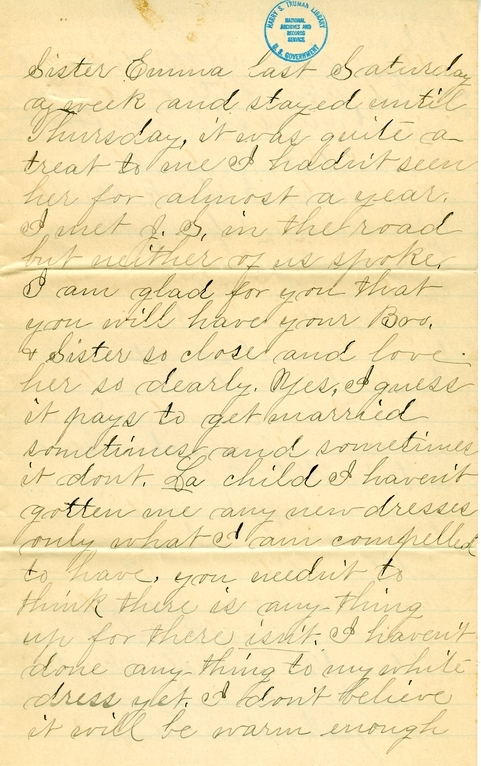 HARRY S. TRUMAN LIBRARY
NATIONAL
ARCHIVES AND
RECORDS
SERVICE
U.S. GOVERNMENT
Sister Emma last Saturday
a week and stayed until
Thursday, it was quite a
treat to me I hadn't seen
her for almost a year.
I met J. S, in the road
but neither of us spoke.
I am glad for you that
you will have your Bro.
& Sister so close and love
her so dearly. Yes, I guess
it pays to get married
sometimes and sometimes
it dont. La child I haven't
gotten me any new dresses
only what I am compelled
to have, you needn't to
think there is any-thing
up for there isn't. I haven't
done any-thing to my white
dress yet. I don't believe
it will be warm enough